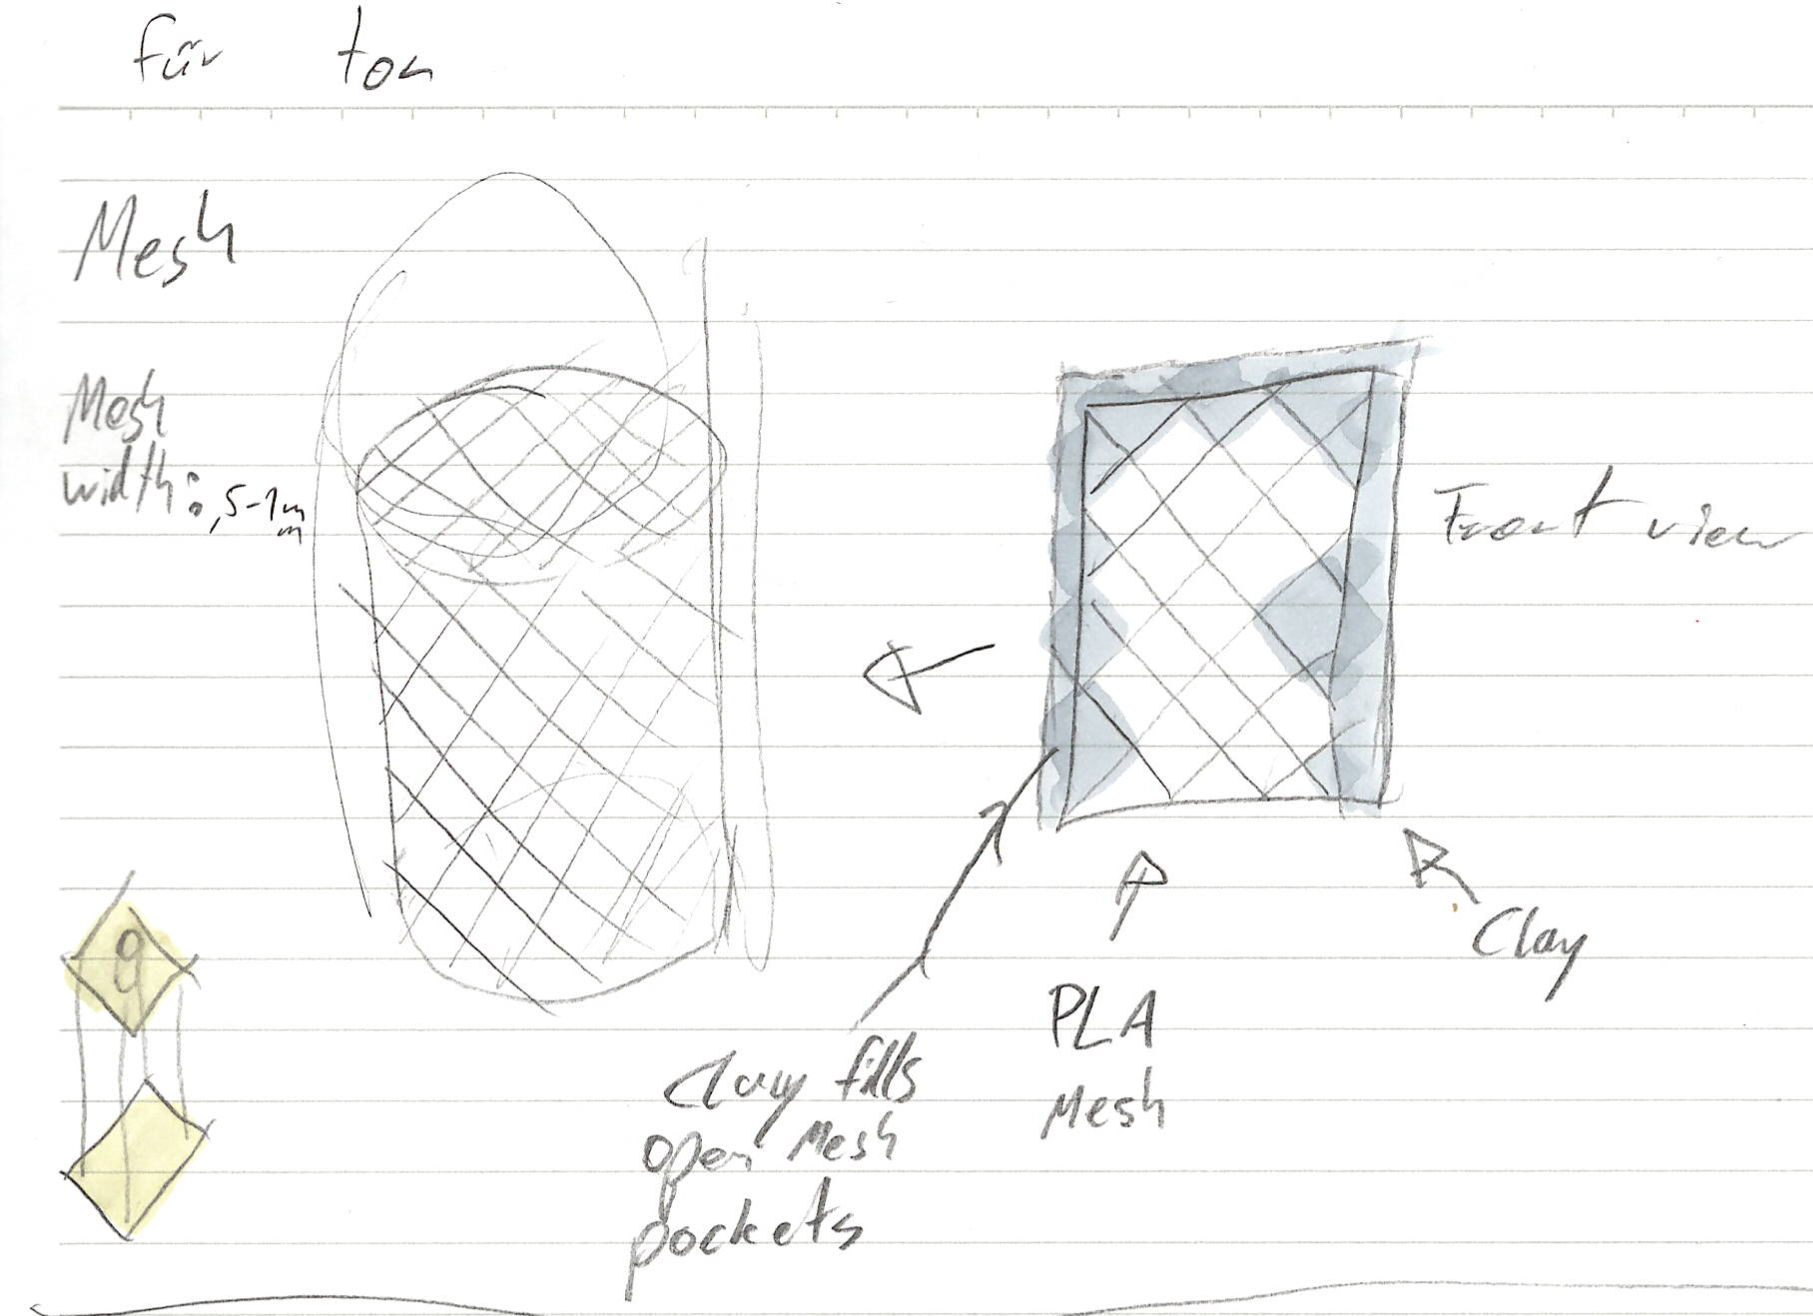 für ton
Mesh
Mesh
width: ,5-1mm
Front view
Clay
PLA
Mesh
Clay fills
open Mesh
pockets
9